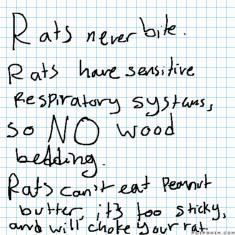 Rats never bite.
Rats have sensitive
Respiratory systems,
so NO wood
bedding.
Rats can't eat Peanut
butter, it's too sticky,
and will choke your rat.